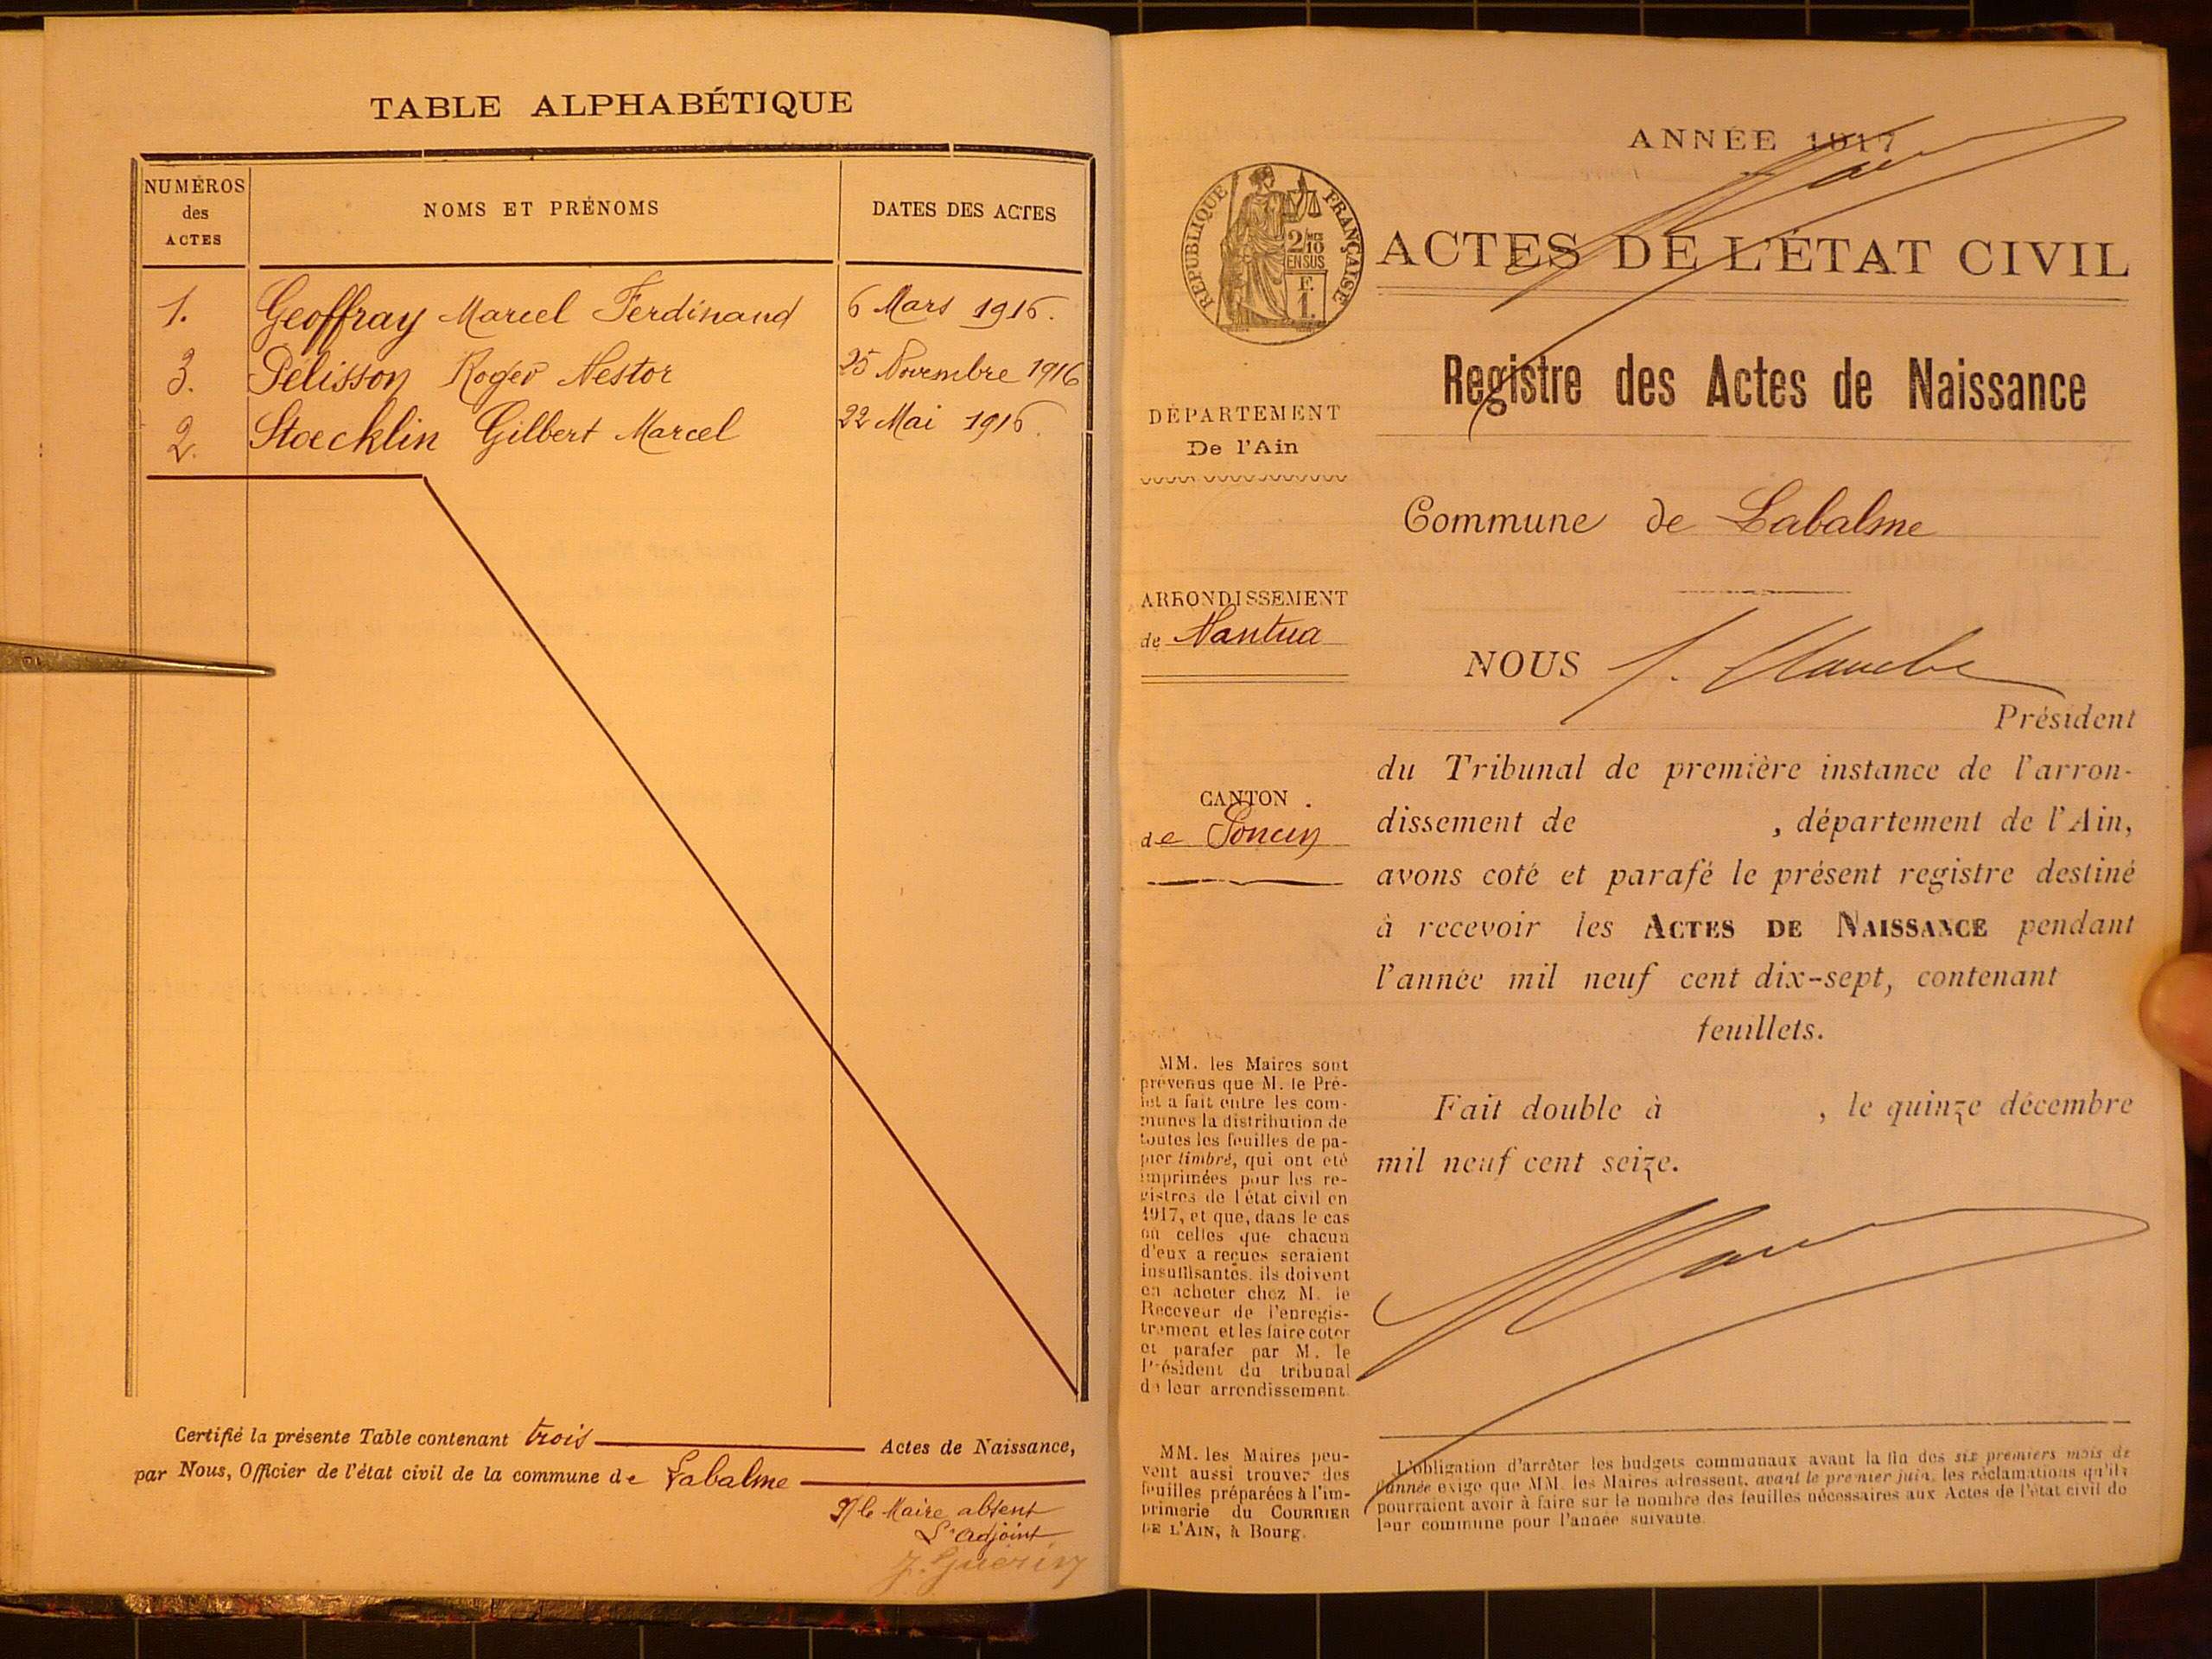 TABLE ALPHABÉTIQUE
NUMÉROS
des
ACTES
NOMS ET PRÉNOMS
DATES DES ACTES
1. Geoffray Marcel Ferdinand 6 Mars 1916.
3. Pélisson Roger Nestor 25 Novembre 1916
2. Stoecklin Gilbert Marcel 22 Mai 1916.
Certifié la présente Table contenant trois Actes de Naissance,
par Nous, Officier de l'état civil de la commune de Labalme
P/ le Maire absent
L'adjoint
J. Guérin
ANNÉE 1917
RÉPUBLIQUE FRANÇAISE
2/10
EN SUS
F.
1.
ACTES DE L'ÉTAT CIVIL
Registre des Actes de Naissance
DÉPARTEMENT
De l'Ain
Commune de Labalme
ARRONDISSEMENT
de Nantua
NOUS
Président
du Tribunal de première instance de l'arron-
dissement de , département de l'Ain,
avons coté et parafé le présent registre destiné
à recevoir les ACTES DE NAISSANCE pendant
l'année mil neuf cent dix-sept, contenant
feuillets.
Fait double à , le quinze décembre
mil neuf cent seize.
CANTON
de Poncin
MM. les Maires sont
prévenus que M. le Pré-
fet a fait entre les com-
munes la distribution de
toutes les feuilles de pa-
pier timbré, qui ont été
imprimées pour les re-
gistres de l'état civil en
1917, et que, dans le cas
où celles que chacun
d'eux a reçues seraient
insuffisantes, ils doivent
en acheter chez M. le
Receveur de l'enregis-
trement et les faire coter
et parafer par M. le
Président du tribunal
de leur arrondissement.
MM. les Maires peu-
vent aussi trouver des
feuilles préparées à l'im-
primerie du COURRIER
DE L'AIN, à Bourg.
L'obligation d'arrêter les budgets communaux avant la fin des six premiers mois de
l'année exige que MM. les Maires adressent, avant le premier juin, les réclamations qu'ils
pourraient avoir à faire sur le nombre des feuilles nécessaires aux Actes de l'état civil de
leur commune pour l'année suivante.